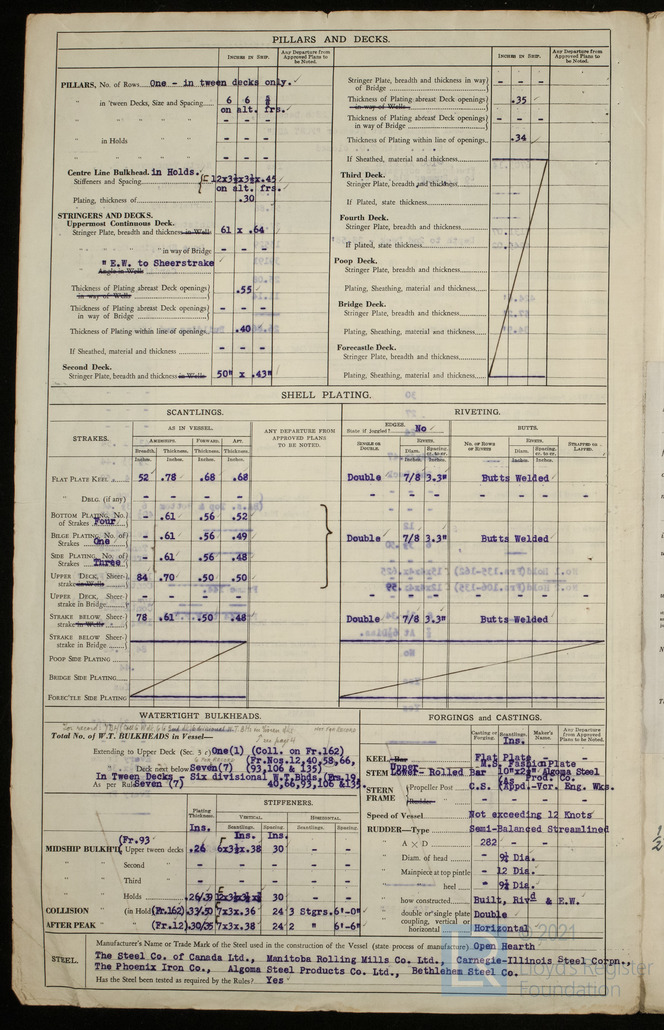 PILLARS AND DECKS.
INCHES IN SHIP.
Any Departure from Approved Plans to be Noted.
PILLARS, No. of Rows One - in tween decks only.
" in 'tween Decks, Size and Spacing 6 6
on alt. frs.
" " " " - - -
" in Holds - - -
" " " - - -
Centre Line Bulkhead. in Holds.
Stiffeners and Spacing 12x3½x3½x.45
on alt. frs.
Plating, thickness of .30
STRINGERS AND DECKS.
Uppermost Continuous Deck.
Stringer Plate, breadth and thickness in Wells 61 x .64
" " " " in way of Bridge - - -
" E.W. to Sheerstrake
Angle in Wells
Thickness of Plating abreast Deck openings in way of Wells .55
Thickness of Plating abreast Deck openings in way of Bridge - - -
Thickness of Plating within line of openings .40
If Sheathed, material and thickness - - -
Second Deck.
Stringer Plate, breadth and thickness in Wells 50" x .43"
INCHES IN SHIP.
Any Departure from Approved Plans to be Noted.
Stringer Plate, breadth and thickness in way of Bridge - - -
Thickness of Plating abreast Deck openings in way of Wells .35
Thickness of Plating abreast Deck openings in way of Bridge - - -
Thickness of Plating within line of openings .34
If Sheathed, material and thickness
Third Deck.
Stringer Plate, breadth and thickness
If Plated, state thickness
Fourth Deck.
Stringer Plate, breadth and thickness
If plated, state thickness
Poop Deck.
Stringer Plate, breadth and thickness
Plating, Sheathing, material and thickness
Bridge Deck.
Stringer Plate, breadth and thickness
Plating, Sheathing, material and thickness
Forecastle Deck.
Stringer Plate, breadth and thickness
Plating, Sheathing, material and thickness
SHELL PLATING.
SCANTLINGS.
RIVETING.
STRAKES.
AS IN VESSEL.
AMIDSHIPS. FORWARD. AFT.
Breadth. Thickness. Thickness. Thickness.
Inches. Inches. Inches. Inches.
ANY DEPARTURE FROM APPROVED PLANS TO BE NOTED.
EDGES.
State if joggled? No
DOUBLE OR DOUBLE.
RIVETS.
Diam. Spacing cr. to cr.
Inches. Inches.
BUTTS.
No. OF ROWS OF RIVETS
RIVETS.
Diam. Spacing cr. to cr.
Inches. Inches.
STRAPPED OR LAPPED.
FLAT PLATE KEEL 52 .78 .68 .68 Double 7/8 3.3" Butts Welded
" DBLG. (if any) - - - - - - - - - - -
BOTTOM PLATING, No. of Strakes Four - .61 .56 .52
BILGE PLATING, No. of Strakes One - .61 .56 .49 Double 7/8 3.3" Butts Welded
SIDE PLATING, No. of Strakes Three - .61 .56 .48
UPPER DECK, Sheer-strake in Wells 84 .70 .50 .50
UPPER DECK, Sheer-strake in Bridge - - - - - - - - - - -
STRAKE BELOW Sheer-strake in Wells 78 .61 .50 .48 Double 7/8 3.3" Butts Welded
STRAKE BELOW Sheer-strake in Bridge
POOP SIDE PLATING
BRIDGE SIDE PLATING
FOREC'TLE SIDE PLATING
WATERTIGHT BULKHEADS.
Total No. of W.T. BULKHEADS in Vessel—
Extending to Upper Deck (Sec. 3 c) One(1) (Coll. on Fr.162)
" Deck next below Seven(7) (Fr.Nos.12,40,58,66,
(93,106 & 135)
In Tween Decks - Six divisional W.T.Bhds.(Frs.19,
As per Rule Seven (7) 40,66,93,106 &135.
Plating Thickness.
STIFFENERS.
VERTICAL. HORIZONTAL.
Scantlings. Spacing. Scantlings. Spacing.
Ins. Ins. Ins.
(Fr.93
MIDSHIP BULKH'D, Upper tween decks .26 6x3½x.38 30 - -
" " Second " - - - - -
" " Third " - - - - -
" " Holds .26/.39 30 - -
COLLISION " (in Hold) (Fr.162) .33/.50 7x3x.36 24 3 Stgrs. 6'-0"
AFTER PEAK " (Fr.12) .30/.35 7x3x.38 24 2 " 6'-0"
FORGINGS and CASTINGS.
Casting or Forging. Scantlings. Maker's Name. Any Departure from Approved Plans to be Noted.
Ins.
KEEL, Bar Flat Plate
STEM Upper M.S. Fashion Plate
Lower- Rolled Bar 10"x2½" Algoma Steel
(As Prod. Co.
STERN FRAME Propeller Post C.S. (Appd.-Vcr. Eng. Wks.
Rudder "
Speed of Vessel Not exceeding 12 Knots
RUDDER—Type Semi-Balanced Streamlined
" A x D 282 - -
" Diam. of head - 9½ Dia.
" Mainpiece at top pintle - 12 Dia.
" " heel - 9½ Dia.
" how constructed Built, Rivd & E.W.
" double or single plate Double
" coupling, vertical or horizontal Horizontal
STEEL.
Manufacturer's Name or Trade Mark of the Steel used in the construction of the Vessel (state process of manufacture) Open Hearth
The Steel Co. of Canada Ltd., Manitoba Rolling Mills Co. Ltd., Carnegie-Illinois Steel Corpn.,
The Phoenix Iron Co., Algoma Steel Products Co. Ltd., Bethlehem Steel Co.
Has the Steel been tested as required by the Rules? Yes
© 2021
Lloyd's Register
Foundation